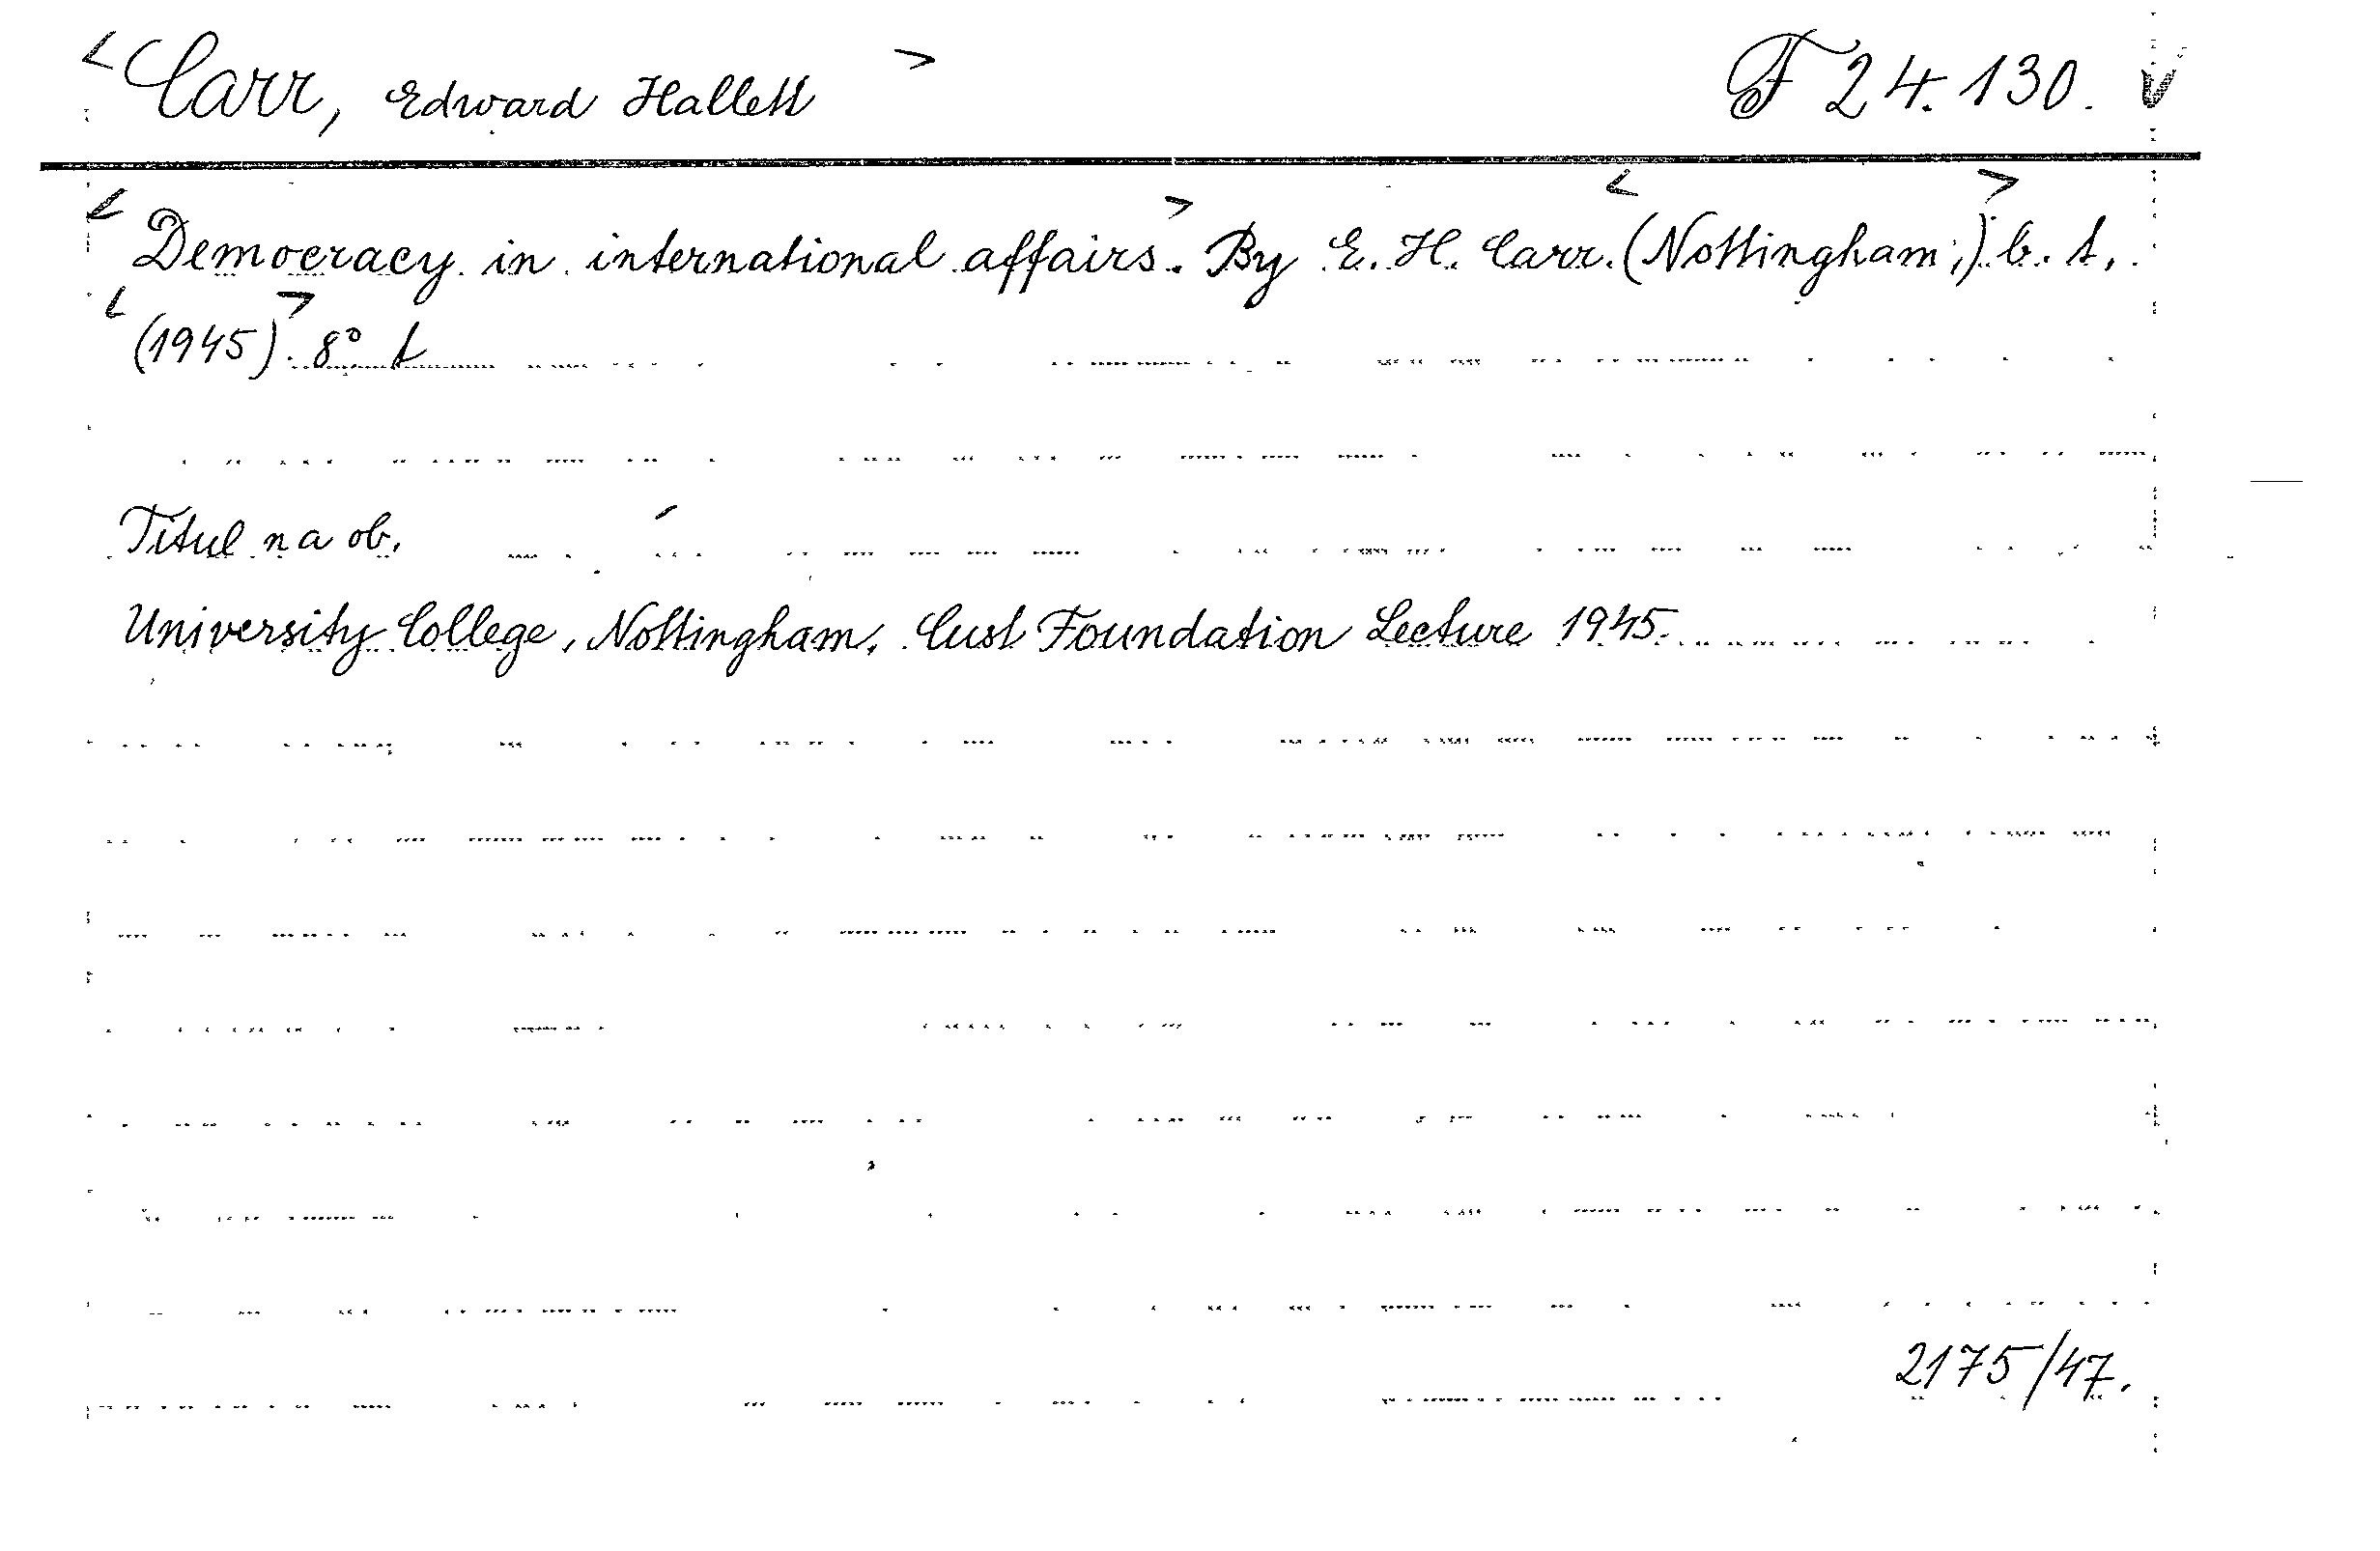 < Carr, Edward Hallett > F 24.130. V
< Democracy in international affairs. > By E. H. Carr. < (Nottingham,) > b. t,
< (1945). > 8° t
Titul na ob.
University College, Nottingham. Cust Foundation Lecture 1945.
2175/47.